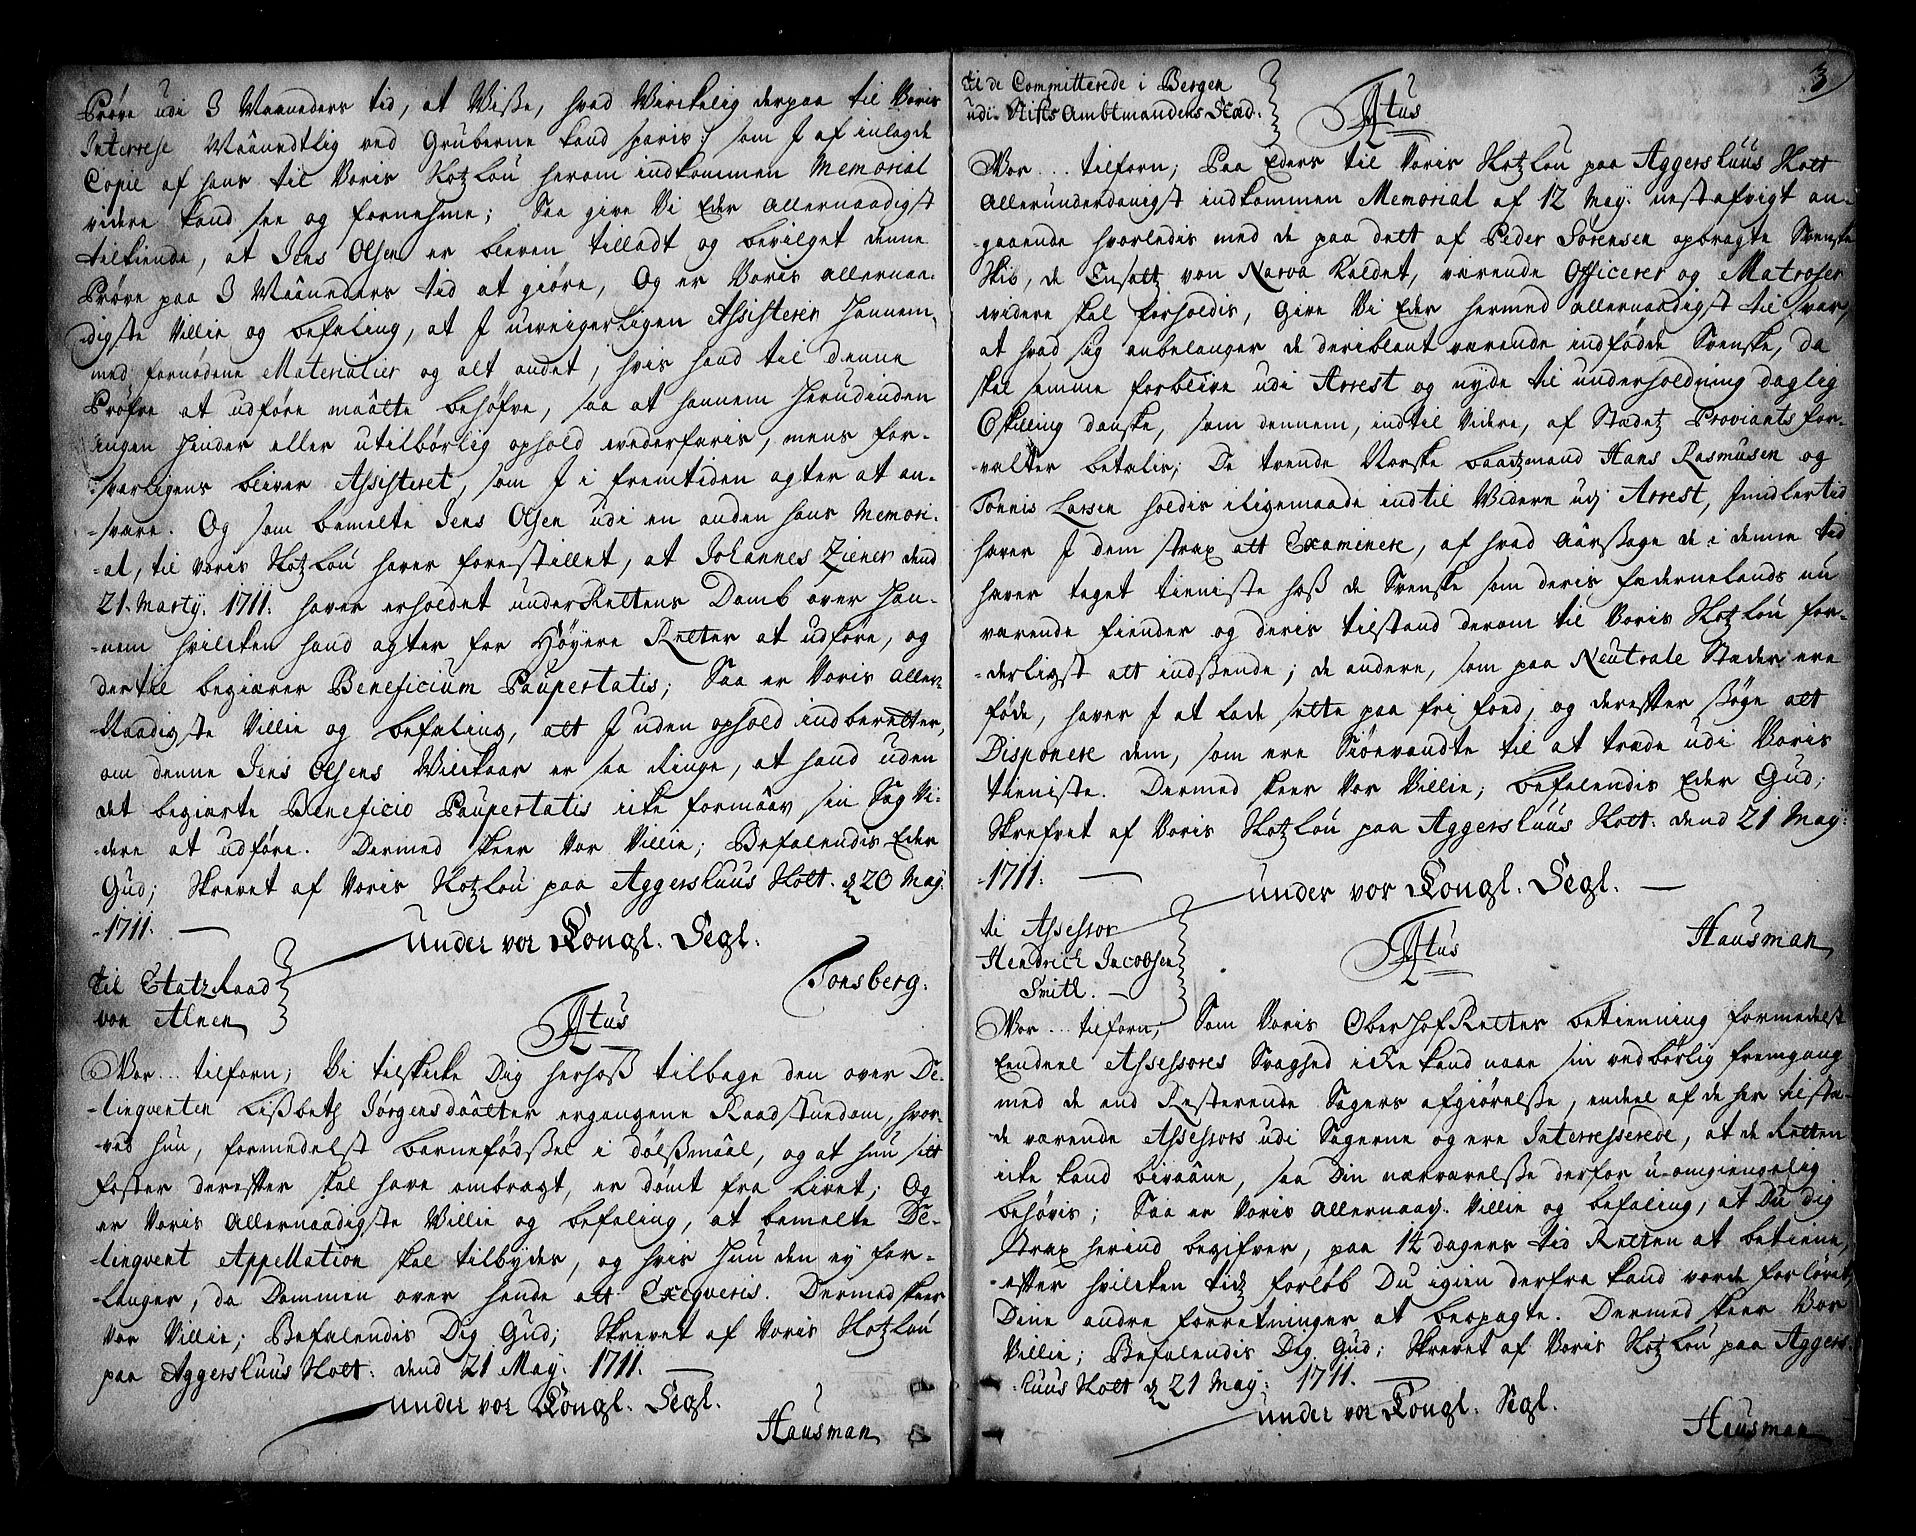 Prøve udi 3 Maaneders tid, at Wiße, hvad Wirckelig derpaa til Voris
Interesse Maanedtlig ved Gruberne kand sparis; som I af inlagde
Copie af hans til Voris Slotzlou herom indkommen Memorial
videre kand see og fornehme; Saa give Vi Eder allernaadigst
tilkiende, at Jens Olsen er bleven tilladt og bevilget denne
Prøve paa 3 Maaneders tid at giøre, Og er Voris allernaa-
-digste Villie og befaling, at I uweigerligen Assisterer hannem
med fornødene Materialier og alt andet, hvis hand til denne
Prøfve at udføre maatte behøfve, saa at hannem herudinden
ingen hinder eller utilbørlig ophold wederfaris, mens for-
-svarligens bliver Assisteret, som I i fremtiden agter at an-
-svare. Og som bemelte Jens Olsen udi en anden hans Memori-
-al, til Voris Slotzlou haver forestillet, at Johannes Ziener dend
21. Martij. 1711. haver erholdet underRettens Domb over han-
-nem hvilcken hand agter for Høyere Retter at udføre, og
dertil begiærer Beneficium Paupertatis; Saa er Voris aller-
-Naadigste Villie og befaling, att I uden ophold indberetter,
om denne Jens Olsens Wilckaar er saa Ringe, at hand uden
det begiærte Beneficio Paupertatis icke formaar sin Sag Vi-
-dere at udføre. Dermed skeer Vor Villie; Befalendis Eder
Gud; Skrevet af Voris Slotzlou paa Aggershuus Slott. d 20 May.
-1711. — under vor Kongl. Segl.
til EtatzRaad
von Alnen
Tonsberg.
Atus
Vor... tilforn; Vi tilskicke Dig herhoß tilbage den over De-
-linqventen Lißbeth Jørgensdaatter ergangene Raadstuedom, hvor-
-ved hun, formedelst barnefødßel i dølßmaal, og at hun sitt
foster derefter skal have ombragt, er dømt fra Livet; Og
er Voris Allernaadigste Willie og befaling, at bemelte De-
-linqvent Appellation skal tilbydes, og hvis hun den ey for-
-langer, da Dommen over hende att Exeqveris. Dermed skeer
Vor Villie; Befalendis Dig Gud; Skrevet af Voris Slotzlou
paa Aggershuus Slott. dend 21 May. 1711. —
under vor Kongl. Segl.
Hausman
3
til de Committerede i Bergen
udi Stifts Ambtmandens Stæd.
Atus
Vor... tilforn; Paa Eders til Voris Slotzlou paa Aggershuus Slott
Allerunderdanigst indkommen Memorial af 12 May. nestafvigt an-
-gaaende hvorledis med de paa dett af Peder Sørensen opbragte Svenske
Skib, de Ensatt von Narva Kaldet, værende Officerer og Matroser
widere skal forholdis, Give Vi Eder hermed allernaadigst til svar,
at hvad sig anbelanger de deriblant værende indfødde Svenske, da
skal semme forblive udi Arrest og nyde til underholdning daglig
6 skilling danske, som dennem, indtil Videre, af Stædetz Proviantsfor-
-valter betalis; De tvende Norske baatzmænd Hans Rasmusen og
Tønnis Larsen holdis iligemaade indtil Widere udj Arrest, Imidlertid
haver I dem strax att Examinere, af hvad Aarßage de i denne tid
haver taget tieniste hoß de Svenske som deris fædernelands nu
værende fiender og deris tilstand derom til Voris Slotzlou for-
-derligst att indßende; de andere, som paa Neutrale Stæder ere
føde, haver I at lade sette paa fri foed, og derefter ßøge att
Disponere dem, som ere Siøevandte til at træde udi Voris
tieniste. Dermed skeer Vor Villie; befalendis Eder Gud;
Skrefvet af Voris Slotzlou paa Aggershuus Slott. dend 21 May.
-1711. — under vor Kongl. Segl. —
Hausman
til Assessor
Hendrich Jacobsen
Smith. —
Atus
Vor... tilforn; Som Voris OberHofRettes betienning formedelst
Eendeel Assessores Svaghed icke kand naae sin vedbørlig fremgang
med de end Resterende Sagers afgiørelße, endeel af de her tilste-
-de værende Assessors udi Sagerne og ere Interesserede, at de Retten
icke kand bivaane, saa Din nærværelße derfor u-omgiengelig
behøvis; Saa er Voris Allernaad. Villie og befaling, at Du dig
strax herind begifver, paa 14 dagers tid Retten at betiene,
-efter hvilcken tidz forløb Du igien derfra kand vorde forlovet
Dine andre forretninger at beopagte. Dermed skeer Vor
Villie; Befalendis Dig Gud; Skrevet af Voris Slotzlou paa Aggers-
-huus Slott d 21 May. 1711. —
under vor Kongl. Segl.
Hausman